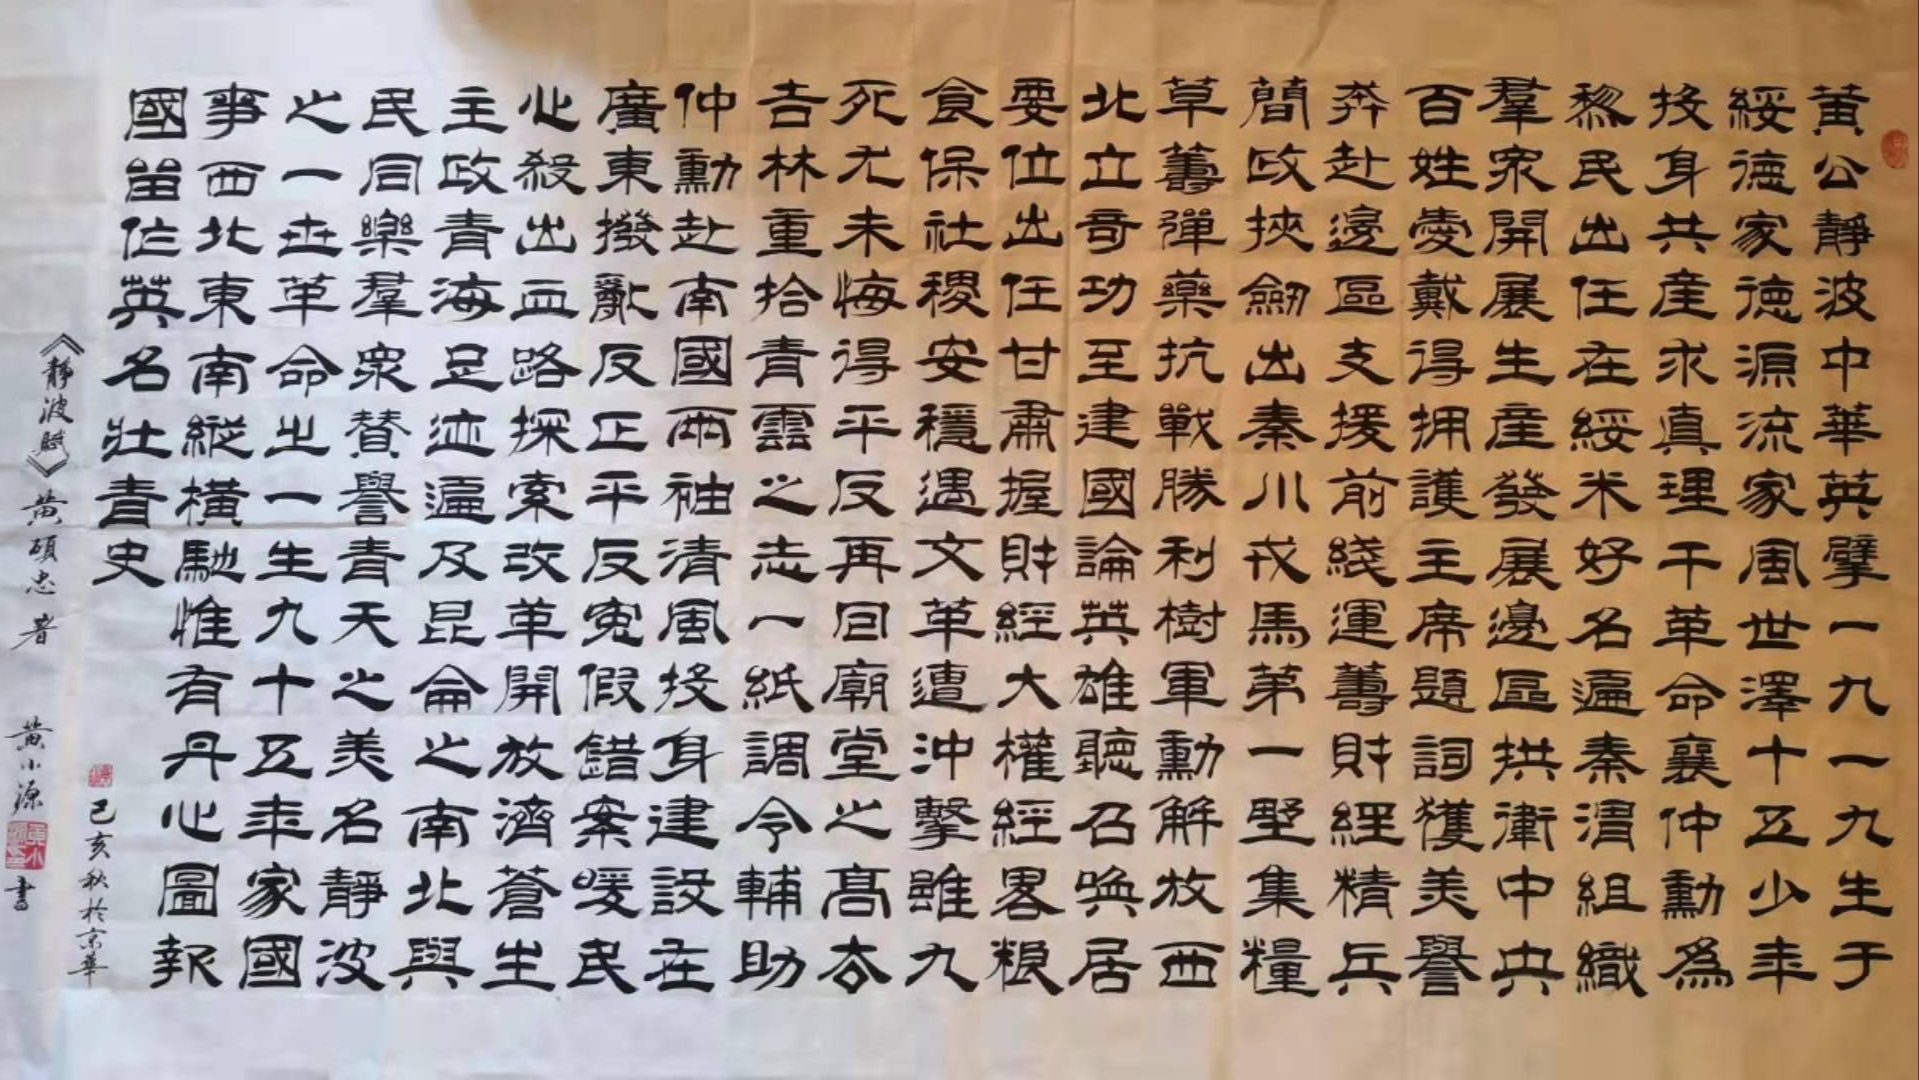 黄公靜波中華英孽一九一九生于
綏德家德源流家風世澤十五少年
投身共産求真理干革命襄仲勳為
黎民出任在綏米好名遍秦渭組織
羣衆開展生産發展邊區拱衛中央
百姓愛戴得拥護主席題詞獲美譽
奔赴邊區支援前綫運籌財經精兵
簡政挾劍出秦川戎馬第一野集糧
草籌彈藥抗戰勝利樹軍勳解放西
北立奇功至建國論英雄聽召喚居
要位出任甘肅握財經大權經畧粮
食保社稷安穩遇文革遭沖擊雖九
死尤未悔得平反再回廟堂之高在
吉林重拾青雲之志一紙調令輔助
仲勳赴南國兩袖清風投身建設在
廣東撥亂反正平反冤假錯案暖民
心殺出血路探索改革開放濟蒼生
主政青海足迹遍及昆侖之南北與
民同樂羣衆賛譽青天之美名靜波
之一世革命之一生九十五年家國
事西北東南縱橫馳惟有丹心圖報
國留作英名壯青史
《靜波賦》黄碩忠著 黄小源書
己亥秋於京華